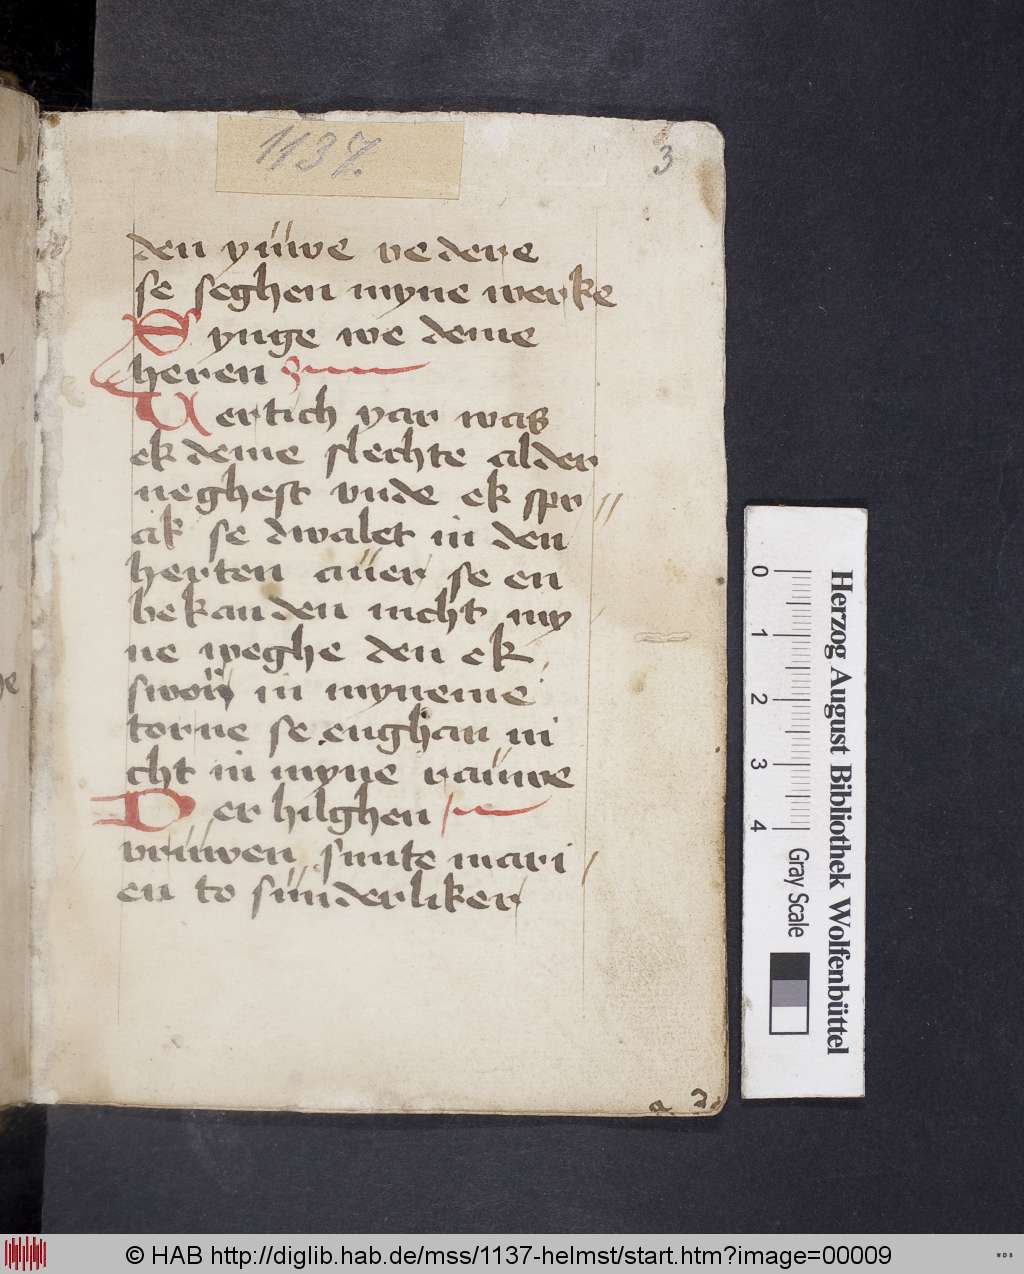 1137.
3
den yuͤwe vedere
se seghen myne werke
Synge we deme
heren
Uertich yar was
ek deme slechte alder
neghest vnde ek spr
ak se dwalet in den
herten auͤer se en
bekanden nicht my
ne weghe den ek
swoͤr in myneme
torne se enghan ni
cht in myne rauͤwe
Der hilghen
vruͤwen sunte mari
en to suͤnderliker
0 1 2 3 4
Gray Scale
Herzog August Bibliothek Wolfenbüttel
© HAB http://diglib.hab.de/mss/1137-helmst/start.htm?image=00009